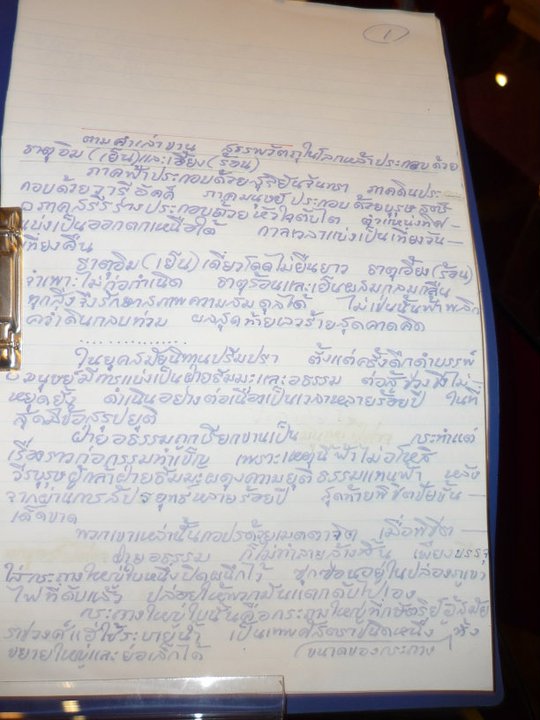 1
ตามคำเล่าขาน สรรพวัตถุในโลกหล้าประกอบด้วย
ธาตุอิม (เย็น) และเอี้ยง (ร้อน)
ภาคฟ้าประกอบด้วยสุริยันจันทรา ภาคดินประ-
กอบด้วยวารีอัคคี ภาคมนุษย์ประกอบด้วยบุรุษสตรี
อวัยวะร่างประกอบด้วยหัวใจตับไต ตำแหน่งทิศ-
แบ่งเป็นออกตกเหนือใต้ กาลเวลาแบ่งเป็นเที่ยงวัน-
เที่ยงคืน
ธาตุอิม (เย็น) เดี่ยวโดดไม่ยืนยาว ธาตุเอี้ยง (ร้อน)
จำเพาะไม่ก่อกำเนิด ธาตุร้อนและเย็นผสมกลมกลืน
ทุกสิ่งจึงรักษาสภาพความสมดุลได้ ไม่เช่นนั้นฟ้าพลิก
คว่ำดินกลบท่วม ผลสุดท้ายเลวร้ายสุดคาดคิด
...............
ในยุคสมัยนิทานปรัมปรา ตั้งแต่ครั้งดึกดำบรรพ์
มนุษย์มีการแบ่งเป็นฝ่ายธัมมะและอธรรม ต่อสู้ช่วงชิงไม่-
หยุดยั้ง ดำเนินอย่างต่อเนื่องเป็นเวลาหลายร้อยปี ในที่
สุดมีข้อสรุปยุติ
ฝ่ายอธรรมถูกเรียกขานเป็น กระทำแต่
เรื่องราวก่อกรรมทำเข็ญ เพราะเหตุนี้ฟ้าไม่อโหสิ
วีรบุรุษผู้กล้าฝ่ายธัมมะผดุงความยุติธรรมแทนฟ้า หลัง
จากผ่านการสัประยุทธ์หลายร้อยปี สุดท้ายพิชิตชัยขั้น-
เด็ดขาด
พวกเขาเหล่านั้นกอปรด้วยเมตตาจิต เมื่อพิชิต-
ฝ่ายอธรรม ก็ไม่ทำลายล้างสิ้น เพียงบรรจุ
ใส่กระถางใหญ่ใบหนึ่งปิดผนึกไว้ ซุกซ่อนอยู่ในปล่องภูเขา
ไฟที่ดับแล้ว ปล่อยให้พวกมันแตกดับไปเอง
กระถางใหญ่ใบนั้นคือกระถางใหญ่ที่กษัตริย์อู๋สมัย
ราชวงศ์แฮ่ใช้ระบายน้ำ เป็นเทพศัสตราชนิดหนึ่ง ทั้ง
ขยายใหญ่และย่อเล็กได้ (ขนาดของกระถาง)